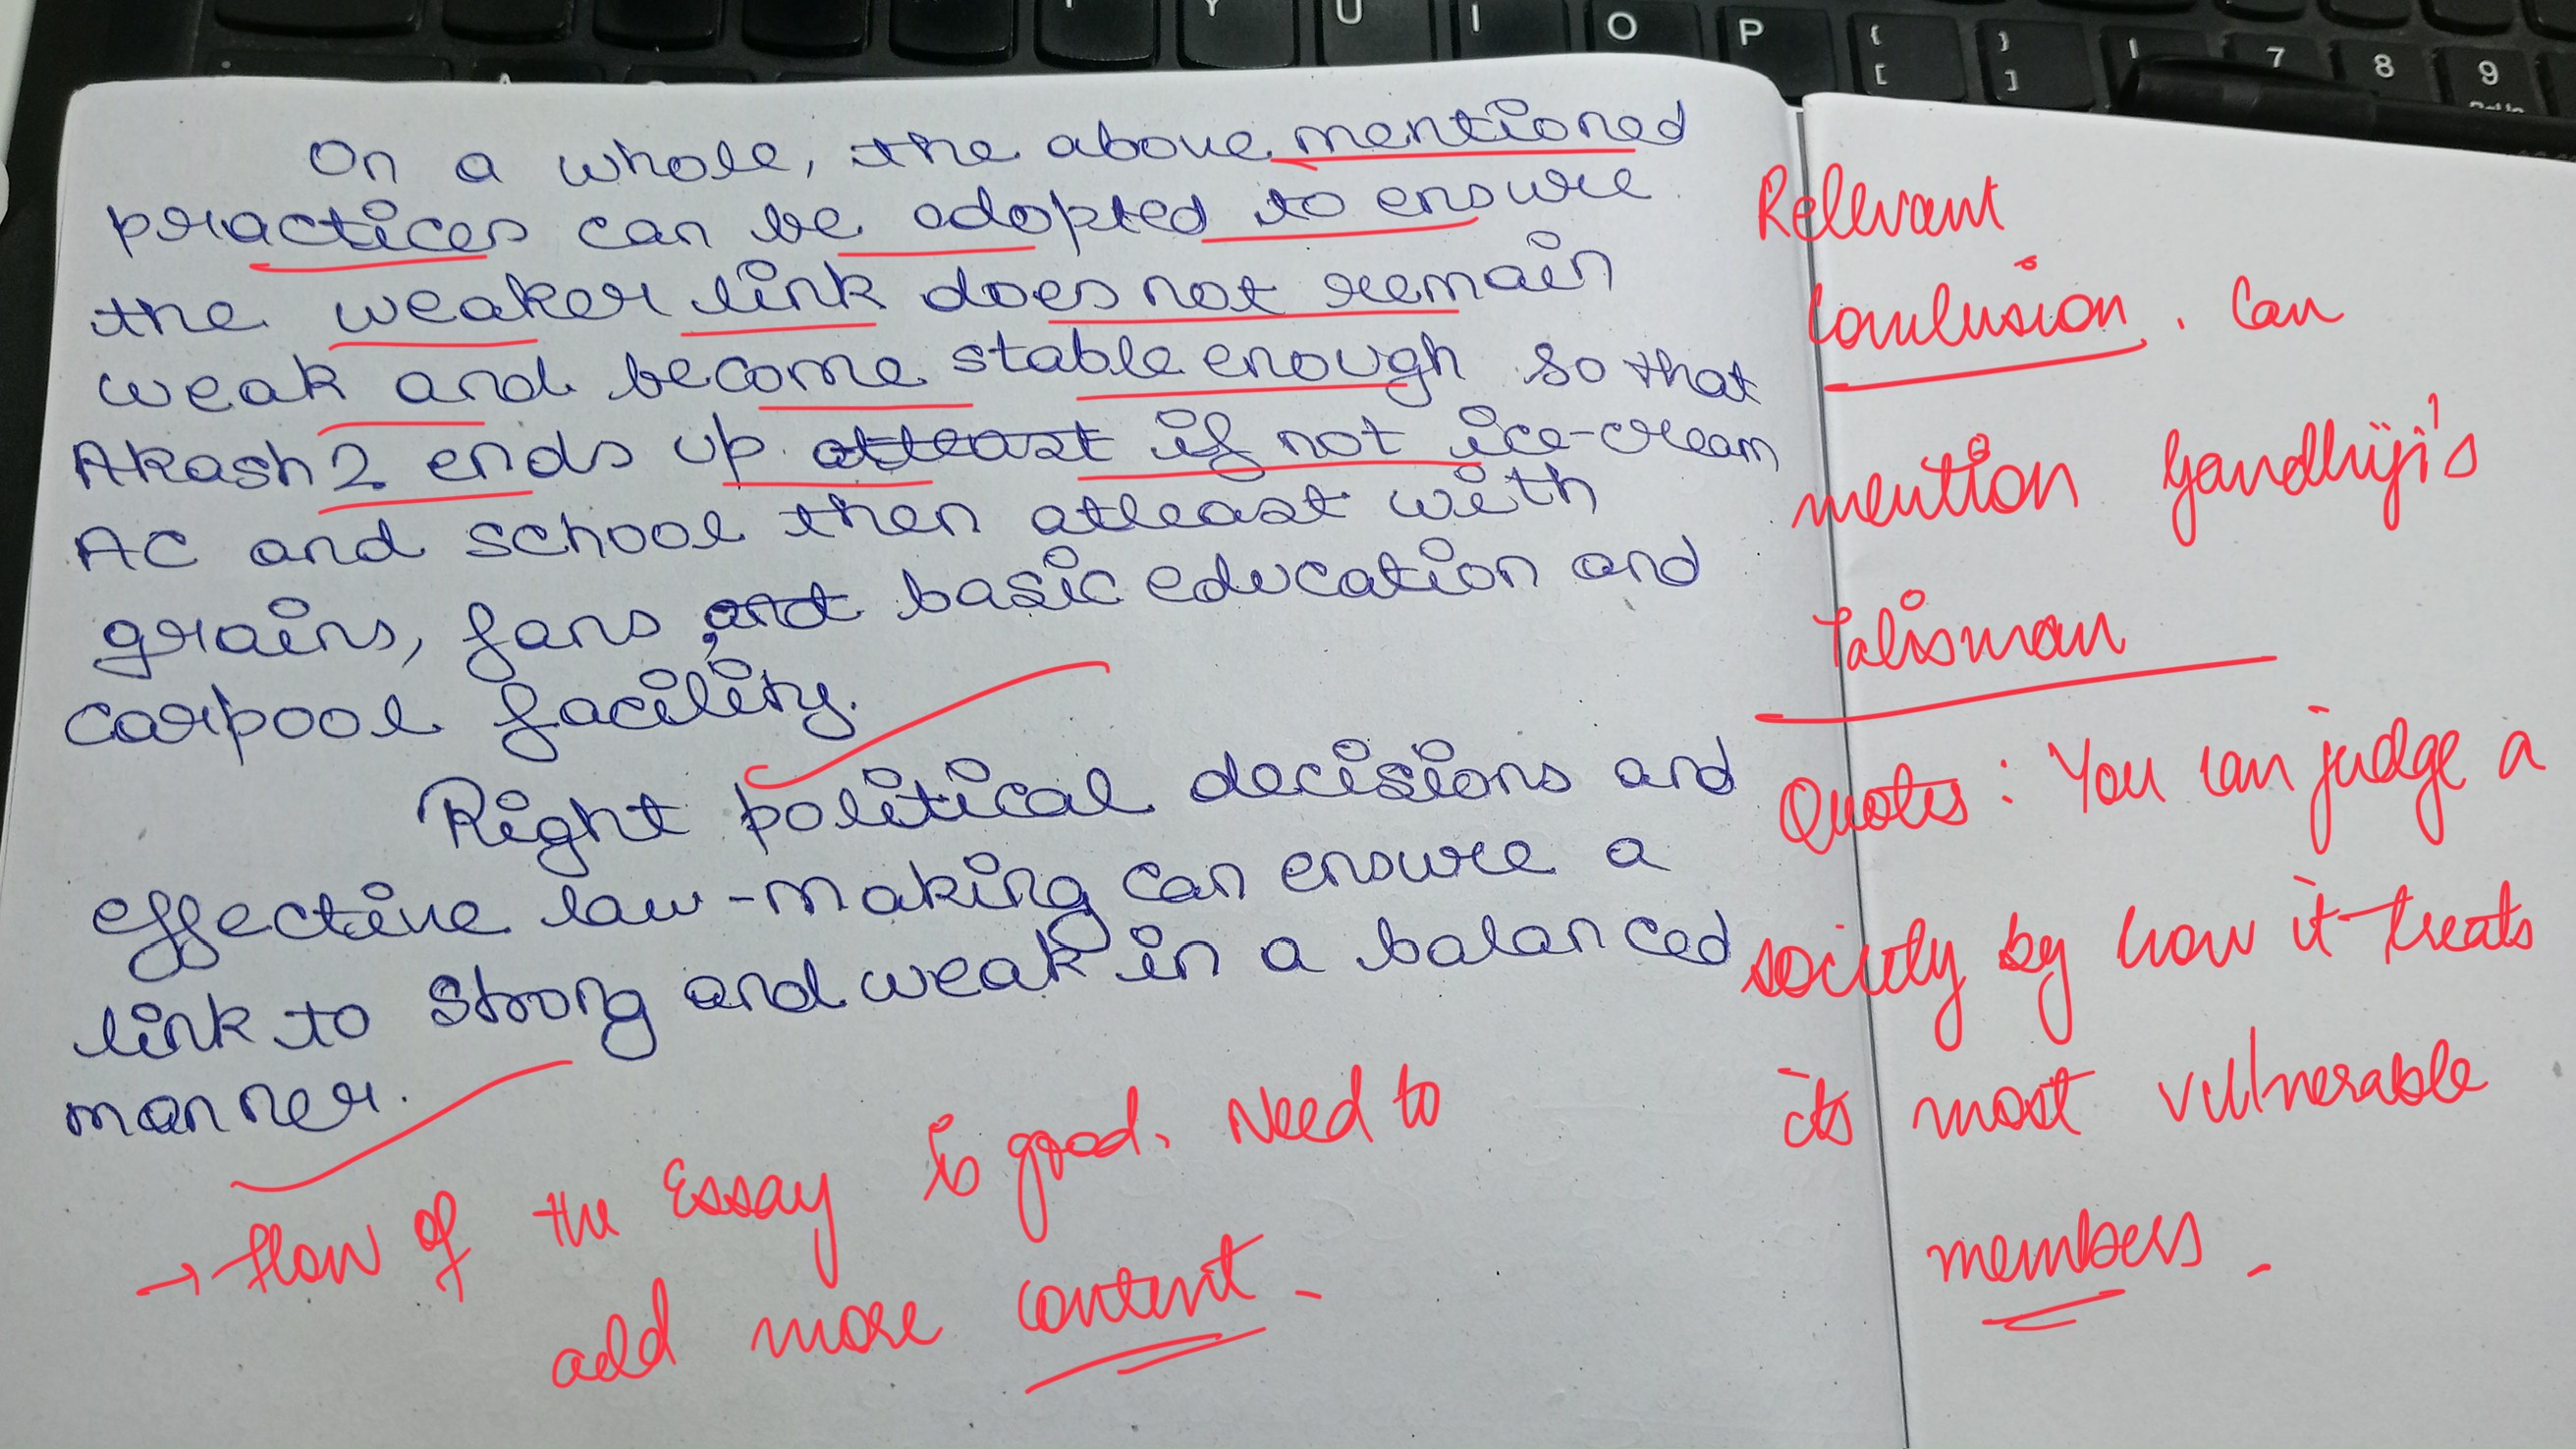 Y U I O P { [ } ] 7 8 9
On a whole, the above mentioned
practices can be adopted to ensure
the weaker link does not remain
weak and become stable enough so that
Akash 2 ends up atleast if not ice-cream
AC and school then atleast with
grains, fans, and basic education and
carpool facility.
Right political decisions and
effective law-making can ensure a
link to strong and weak in a balanced
manner.
→ flow of the Essay is good. Need to
add more content.
Relevant
Conclusion. Can
mention Gandhiji's
Talisman
Quotes: You can judge a
society by how it treats
its most vulnerable
members.